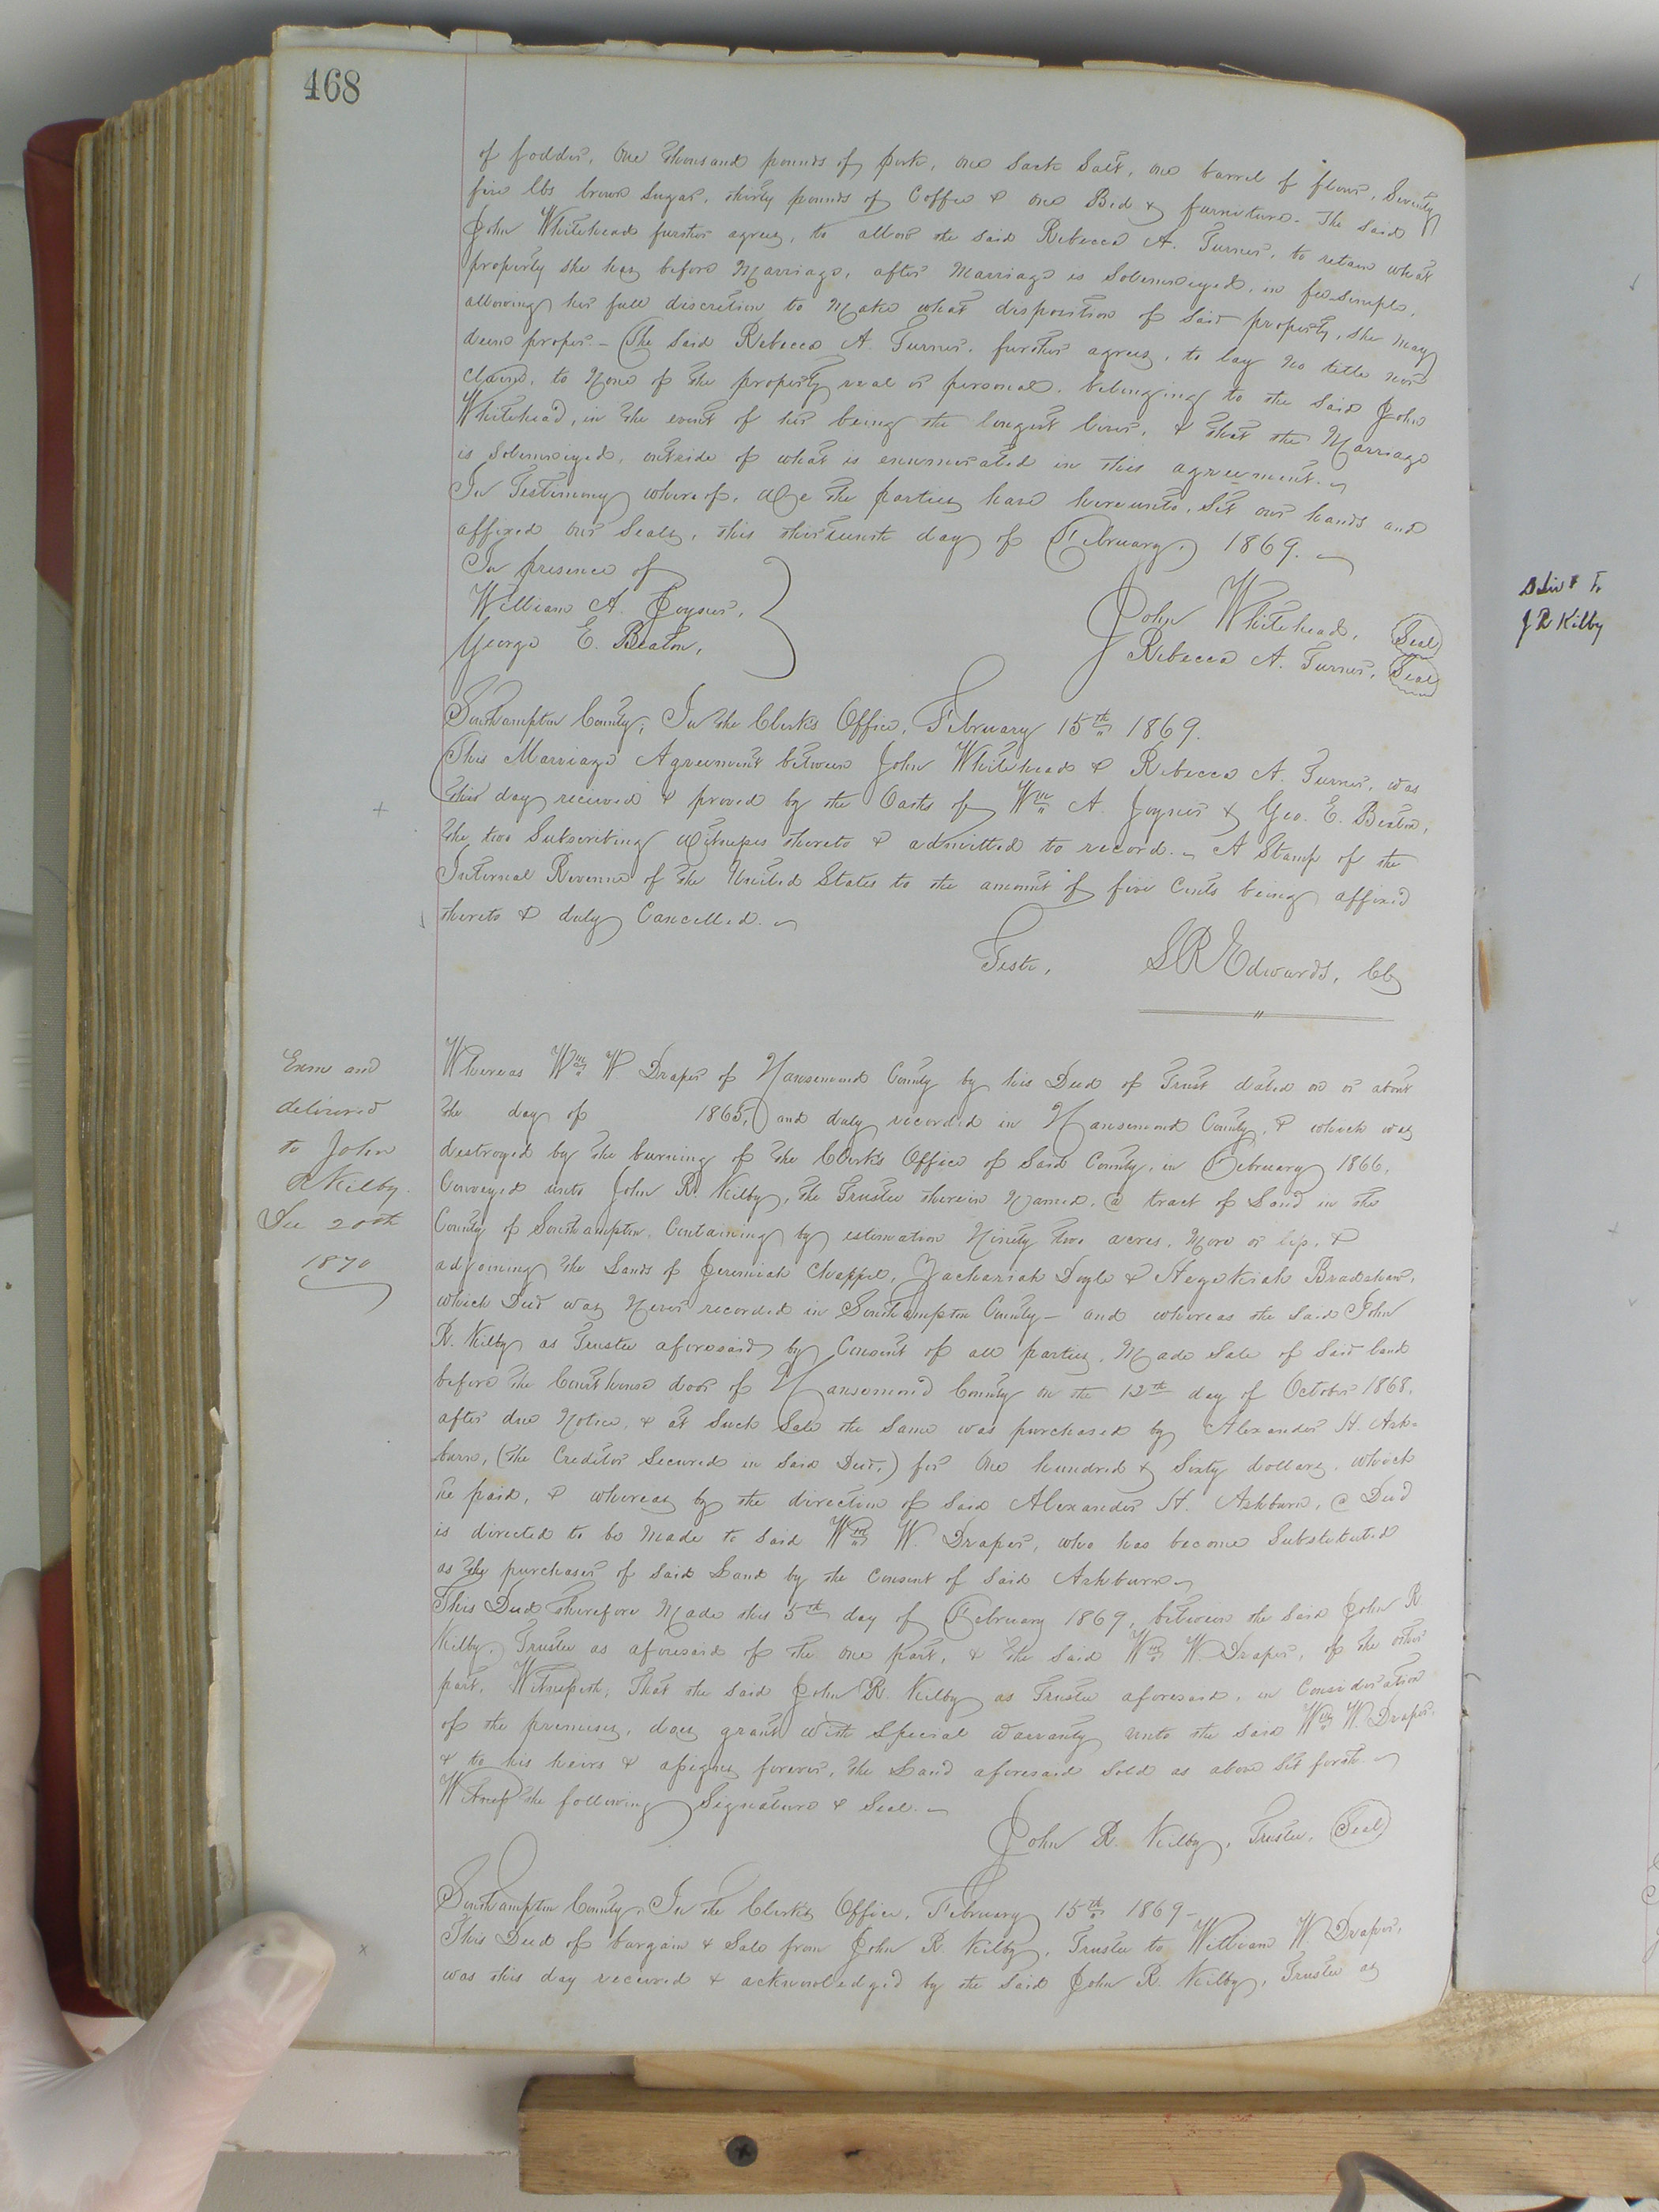 468
of fodder, One thousand pounds of pork, one Sack Salt, one barrel of flour, Seventy
five lbs brown Sugar, thirty pounds of Coffee & one Bed & furniture - The said
John Whitehead further agrees, to allow the said Rebecca A. Turner, to retain what
property she has before Marriage, after Marriage is Solemnized, in fee-simple,
allowing her full discretion to Make what disposition of Said property, she may
deem proper. - The said Rebecca A. Turner, further agrees, to lay no title nor
claim, to None of the property real or personal, belonging to the said John
Whitehead, in the event of her being the longest liver, & that the Marriage
is Solemnized, outside of what is enumerated in this agreement.
In Testimony whereof, We the parties have hereunto, Set our hands and
affixed our Seals, this thirteenth day of February, 1869.
In presence of
William A. Joyner,
George E. Beaton,
John Whitehead, Seal
Rebecca A. Turner, Seal
Southampton County; In the Clerk's Office, February 15th 1869.
This Marriage Agreement between John Whitehead & Rebecca A. Turner, was
this day received & proved by the Oaths of Wm A. Joyner & Geo. E. Beaton,
the two Subscribing Witnesses thereto & admitted to record. A Stamp of the
Internal Revenue of the United States to the amount of five Cents being affixed
thereto & duly Cancelled.
Teste, L R Edwards, CC
Exm and
delivered
to John
R Kilby.
Dec 20th
1870
Whereas Wm W. Draper of Nansemond County by his Deed of Trust dated on or about
the day of 1865, and duly recorded in Nansemond County, & which was
destroyed by the burning of the Clerk's Office of Said County, in February 1866,
Conveyed unto John R. Kilby, the Trustee therein Named, a tract of Land in the
County of Southampton, Containing by estimation Ninety two acres, More or less, &
adjoining the Lands of Jeremiah Chappel, Zachariah Doyle & Hezekiah Bradshaw,
which Deed was Never recorded in Southampton County - and whereas the said John
R. Kilby as Trustee aforesaid, by Consent of all parties, Made Sale of Said land
before the Courthouse door of Nansemond County on the 12th day of October 1868,
after due Notice, & at Such Sale the Same was purchased by Alexander H. Ash-
burn, (the Creditor Secured in Said Deed,) for One hundred & Sixty dollars, which
he paid, & whereas by the direction of Said Alexander H. Ashburn, a Deed
is directed to be Made to Said Wm W. Draper, who has become Substituted
as the purchaser of Said Land by the Consent of Said Ashburn
This Deed therefore Made this 5th day of February 1869, between the Said John R.
Kilby, Trustee as aforesaid of the one part, & the Said Wm W. Draper, of the other
part, Witnesseth, That the Said John R. Kilby as Trustee aforesaid, in Consideration
of the premises, does grant with Special Warranty unto the Said Wm W. Draper,
& to his heirs & assigns forever, the Land aforesaid Sold as above Set forth.
Witness the following Signature & Seal.
John R. Kilby, Trustee, Seal
Southampton County, In the Clerk's Office, February 15th 1869 -
This Deed of bargain & Sale from John R. Kilby, Trustee to William W. Draper,
was this day received & acknowledged by the Said John R. Kilby, Trustee as
J R Kilby